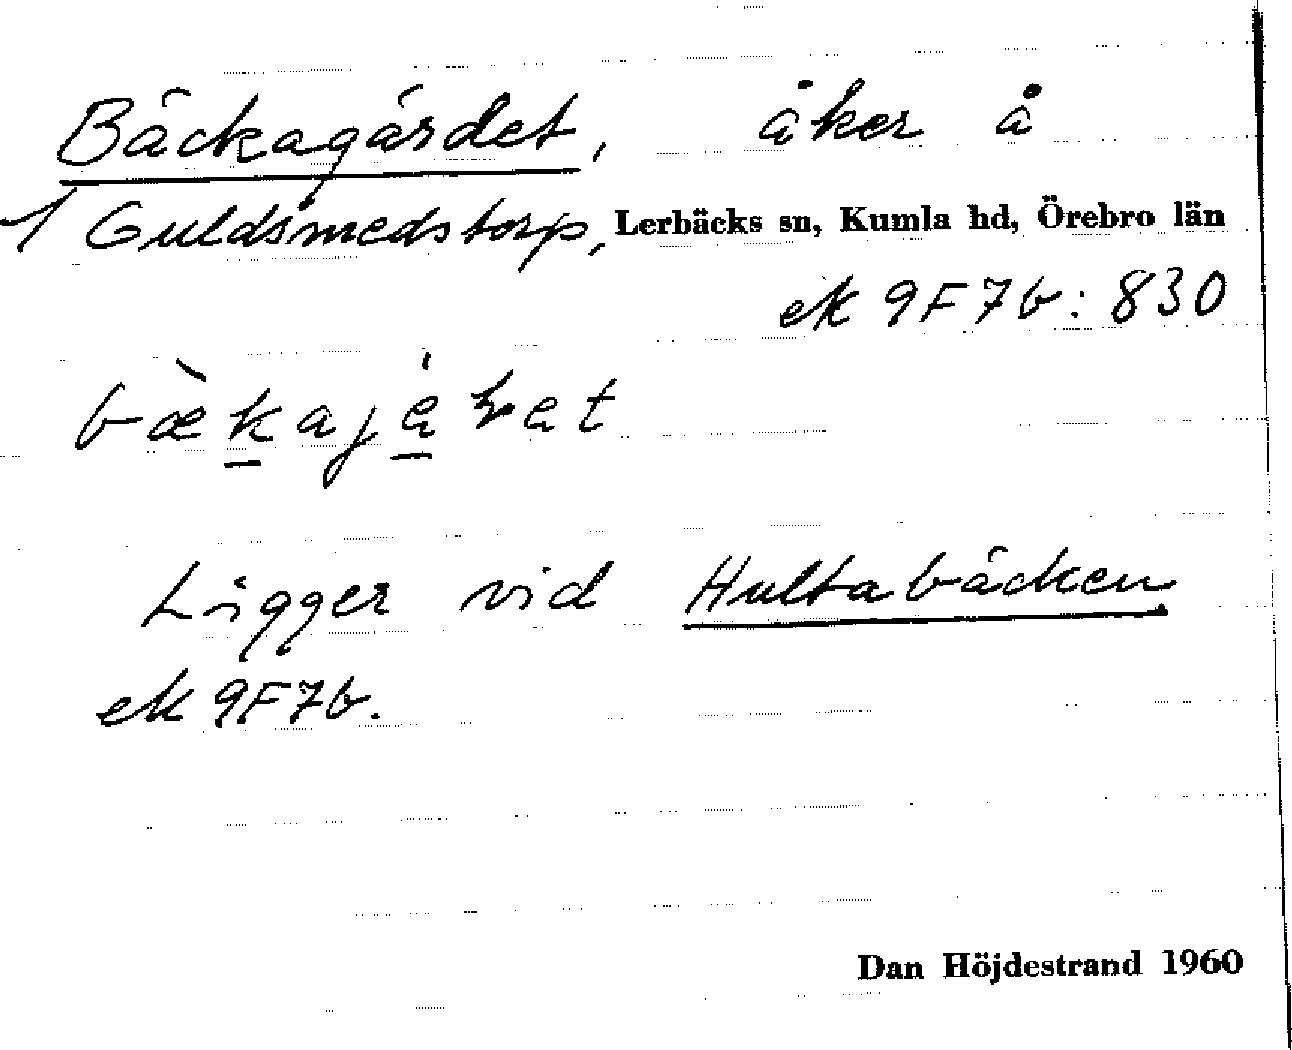 Bäckagärdet, åker å
1 Guldsmedstorp, Lerbäcks sn, Kumla hd, Örebro län
ek 9F7b: 830
Ligger vid Hultabäcken
ek 9F7b.
Dan Höjdestrand 1960